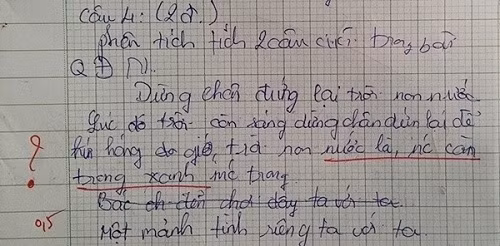 Câu 4: (2đ.)
phân tích tích 2 câu cuối trong bài
QĐN.
Dừng chân đứng lại trời non nước
Lúc đó trời còn sáng dừng chân đứn lại để
hóng gió, trời non nước là, nc cần
trong xanh mc trong
Bác đến chơi đây ta với ta
Một mảnh tình riêng ta với ta
?
0,5